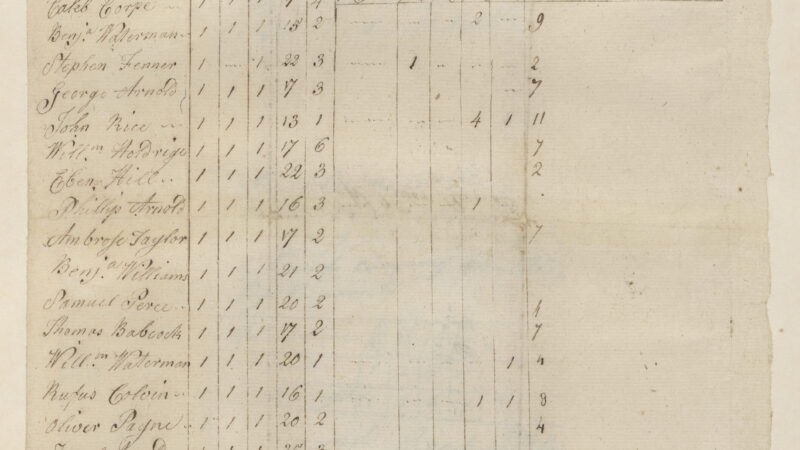 Caleb Corpe 1 1 1 17 4
Benj.ª Waterman 1 1 1 18 2 2 9
Stephen Fenner 1 1 22 3 1 2
George Arnold 1 1 1 17 3 7
John Rice 1 1 1 13 1 4 1 11
Will.m Holdrige 1 1 1 17 6 7
Eben. Hill 1 1 1 22 3 2
Phillip Arnold 1 1 1 16 3 1
Ambrose Taylor 1 1 1 17 2 7
Benj.ª Williams 1 1 1 21 2
Samuel Perce 1 1 1 20 2
Thomas Babcock 1 1 1 17 2 7
Will.m Waterman 1 1 1 20 1 1 4
Rufus Colvin 1 1 1 16 1 1 1 8
Oliver Payne 1 1 1 20 2 4